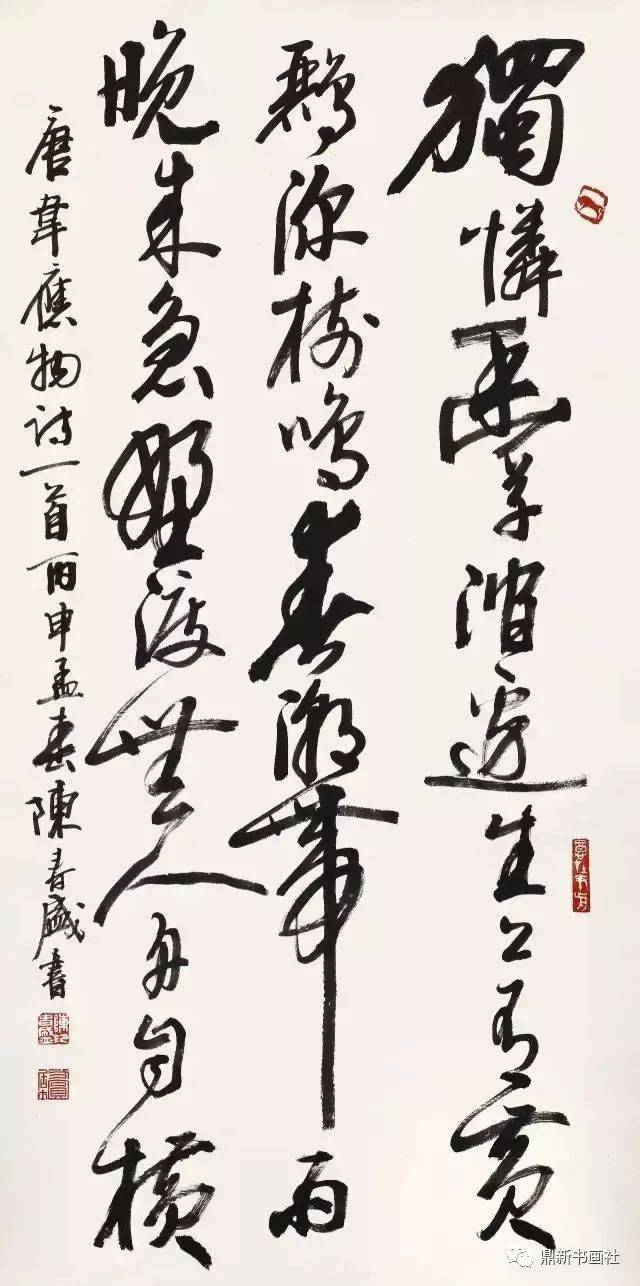 獨憐幽草澗邊生上有黃
鸝深樹鳴春潮帶雨
晚來急野渡無人舟自橫
唐韋應物诗一首丙申孟春陳盛書
鼎新书画社